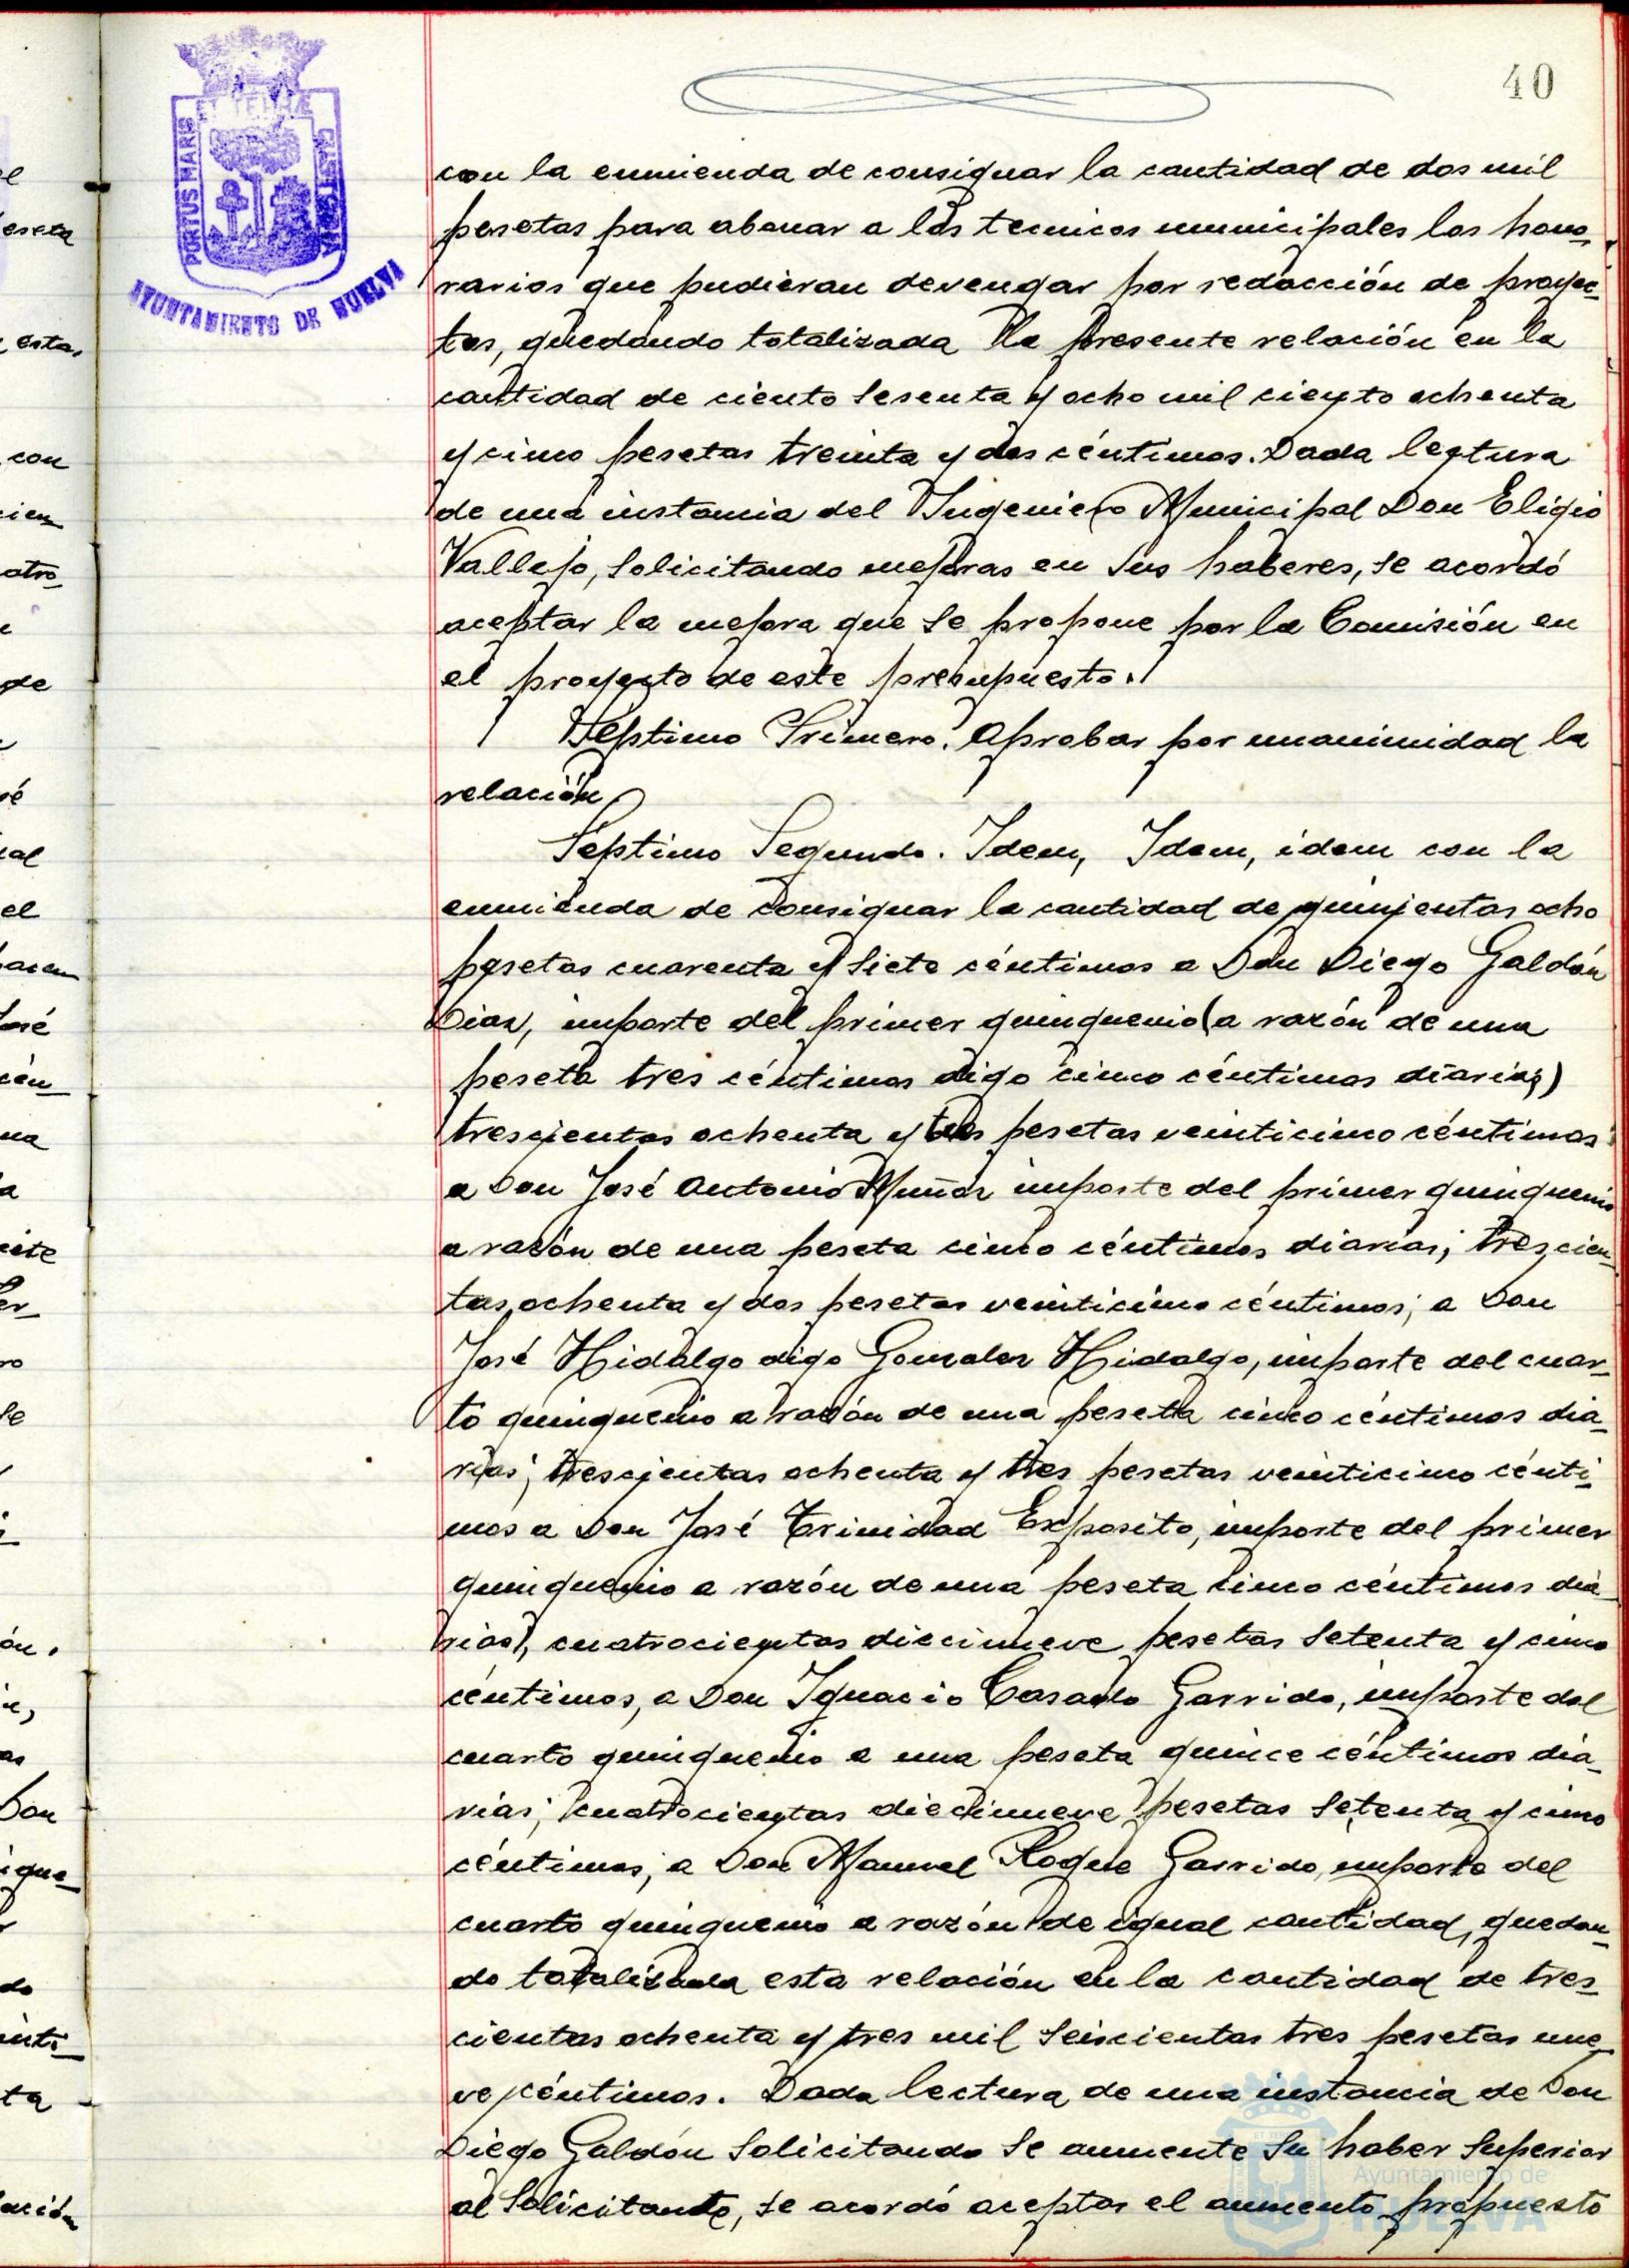 40
ET TERRÆ
PORTUS MARIS
CUSTODIA
AYUNTAMIENTO DE HUELVA
con la enmienda de consignar la cantidad de dos mil
pesetas para abonar a los tecnicos municipales los hono-
rarios que pudieran devengar por redacción de proyec-
tos, quedando totalizada la presente relación en la
cantidad de ciento sesenta y ocho mil ciento ochenta
y cinco pesetas treinta y dos céntimos. Dada lectura
de una instancia del Ingeniero Municipal Don Eligio
Vallejo, solicitando mejoras en sus haberes, se acordó
aceptar la mejora que se propone por la Comisión en
el proyecto de este presupuesto.
Septimo Primero. Aprobar por unanimidad la
relación
Septimo Segundo. Idem, Idem, idem con la
enmienda de consignar la cantidad de quinientas ocho
pesetas cuarenta y siete céntimos a Don Diego Galdón
Dias, importe del primer quinquenio (a razón de una
peseta tres céntimos digo cinco céntimos diarias;)
trescientas ochenta y tres pesetas veinticinco céntimos
a Don José Antonio Muñoz importe del primer quinquenio
a razón de una peseta cinco céntimos diarias; trescien-
tas ochenta y dos pesetas veinticinco céntimos; a Don
José Hidalgo digo Gonzalez Hidalgo, importe del cuar-
to quinquenio a razón de una peseta cinco céntimos dia-
rias; trescientas ochenta y tres pesetas veinticinco cénti-
mos a Don José Trinidad Exposito, importe del primer
quinquenio a razón de una peseta cinco céntimos dia-
rias), cuatrocientas diecinueve pesetas setenta y cinco
céntimos, a Don Ignacio Casado Garrido, importe del
cuarto quinquenio a una peseta quince céntimos dia-
rias; cuatrocientas diecinueve pesetas setenta y cinco
céntimos; a Don Manuel Roque Garrido, importe del
cuarto quinquenio a razón de igual cantidad, quedan-
do totalizada esta relación en la cantidad de tres-
cientas ochenta y tres mil seiscientas tres pesetas nue-
ve céntimos. Dada lectura de una instancia de Don
Diego Galdón solicitando se aumente su haber superior
al solicitante, se acordó aceptar el aumento propuesto
Ayuntamiento de
HUELVA